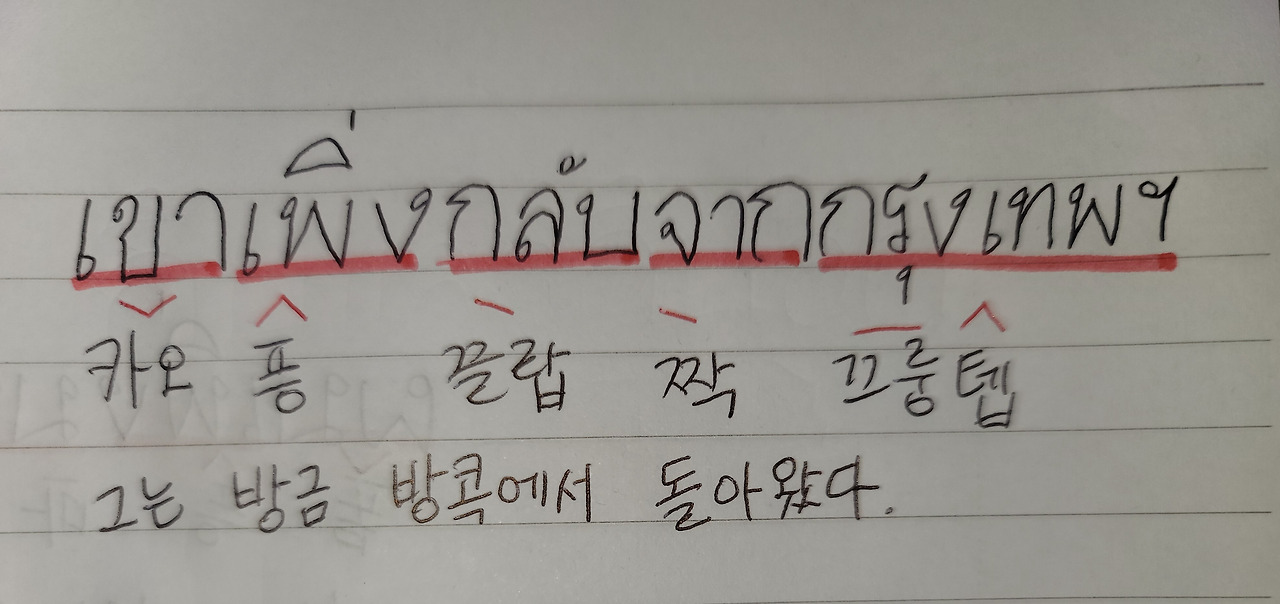 เขาเพิ่งกลับจากกรุงเทพฯ
카오 픙 끌랍 짝 끄룽텝
그는 방금 방콕에서 돌아왔다.